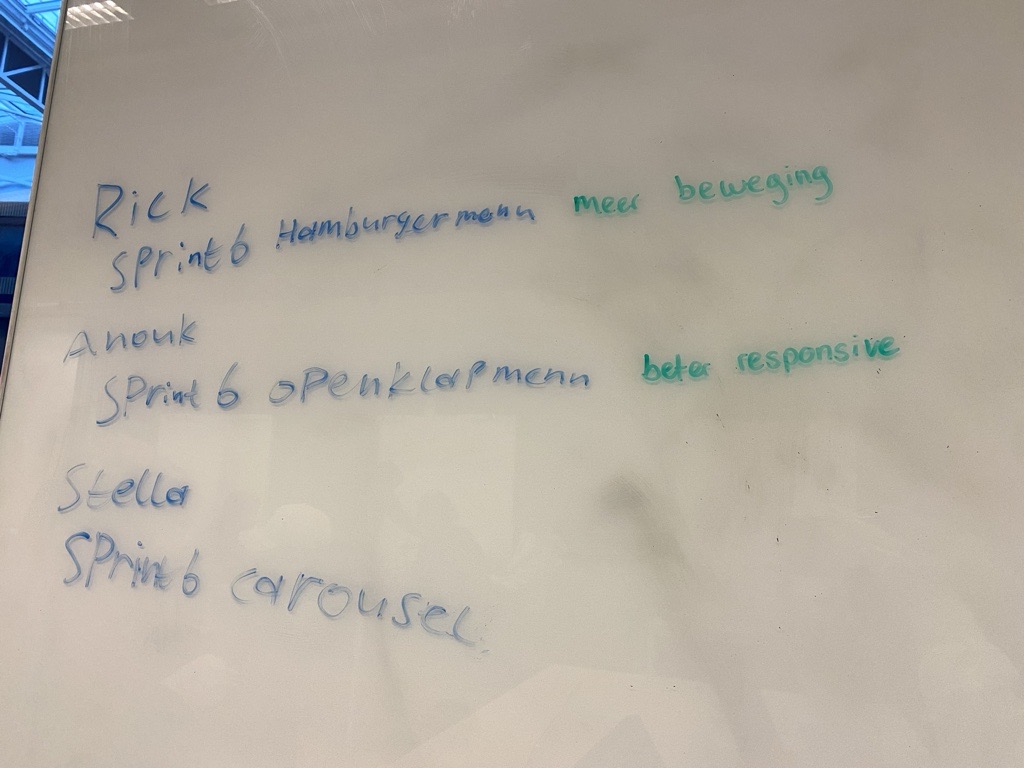 Rick
Sprint 6 Hamburgermenu meer beweging
Anouk
Sprint 6 openklapmenu beter responsive
Stella
Sprint 6 carousel